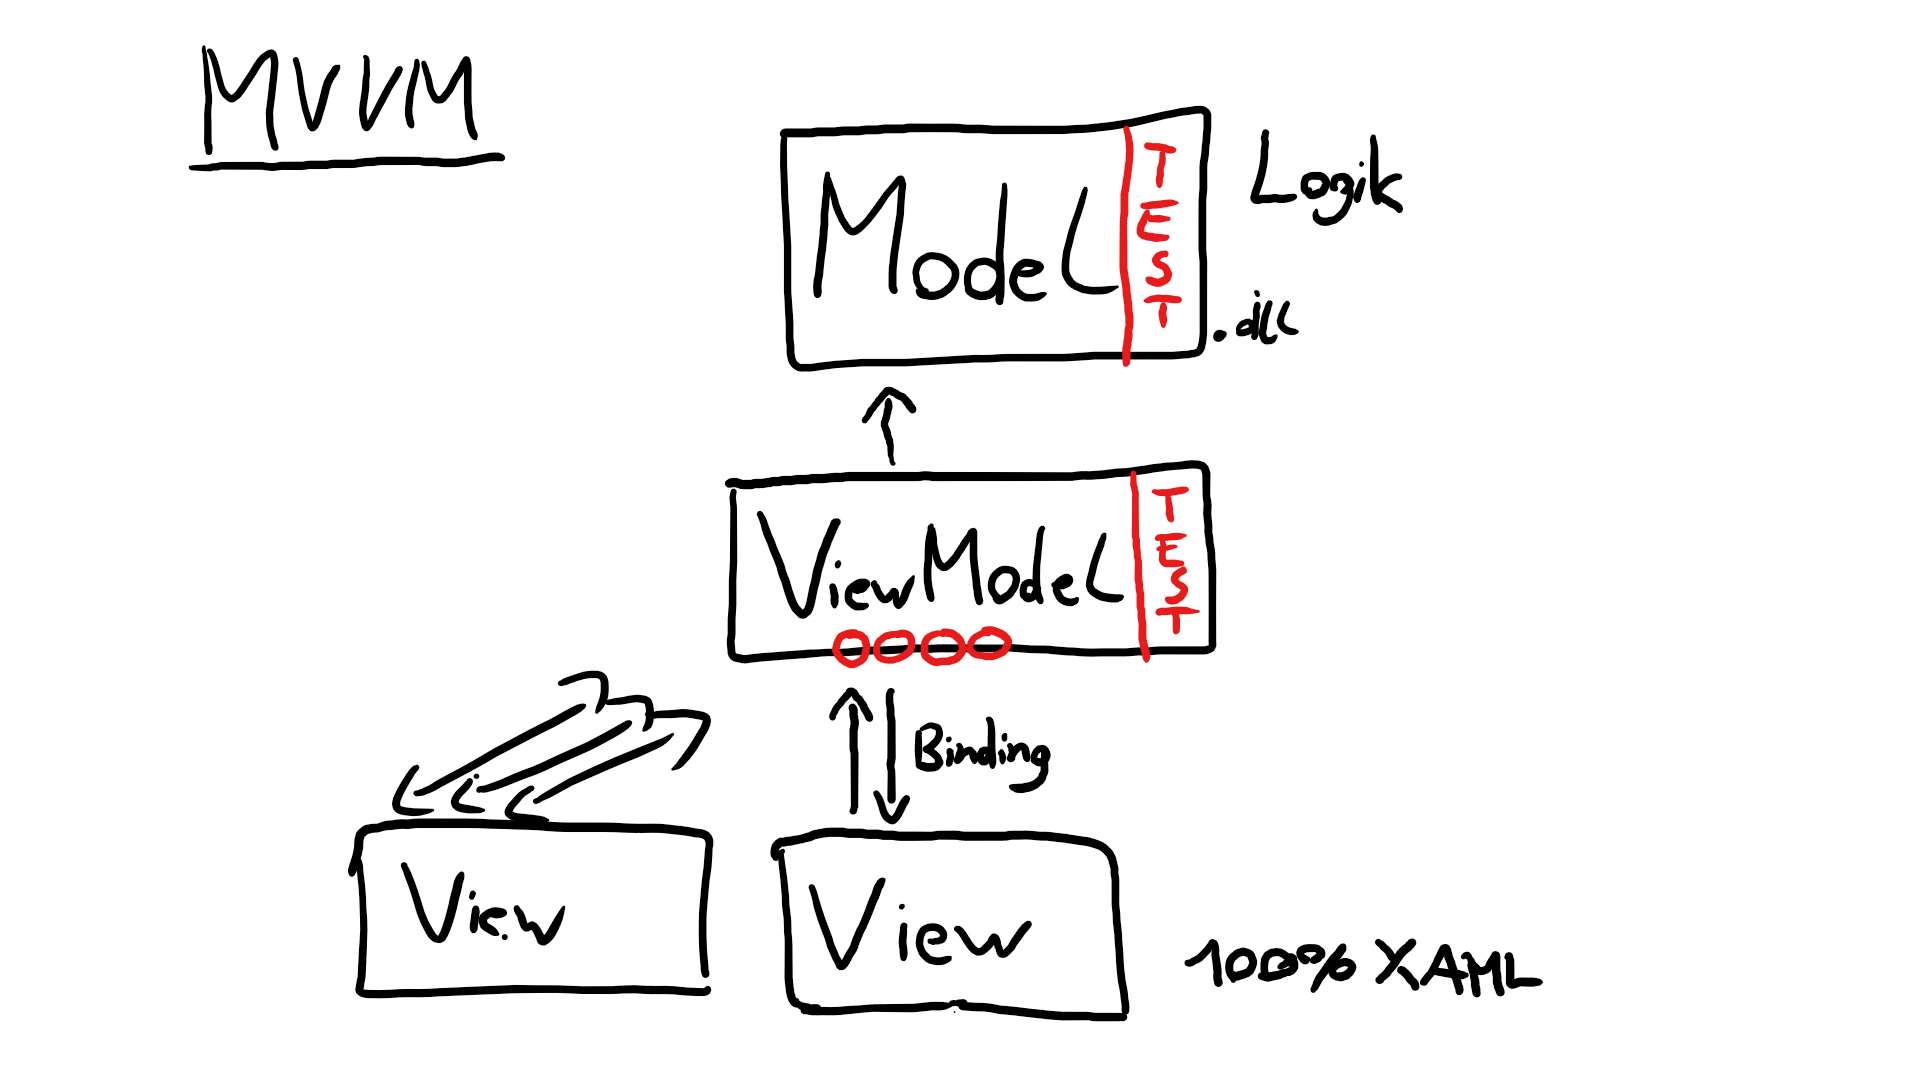 MVVM
Model
TEST
Logik
.dll
ViewModel
TEST
Binding
View
View
100% XAML